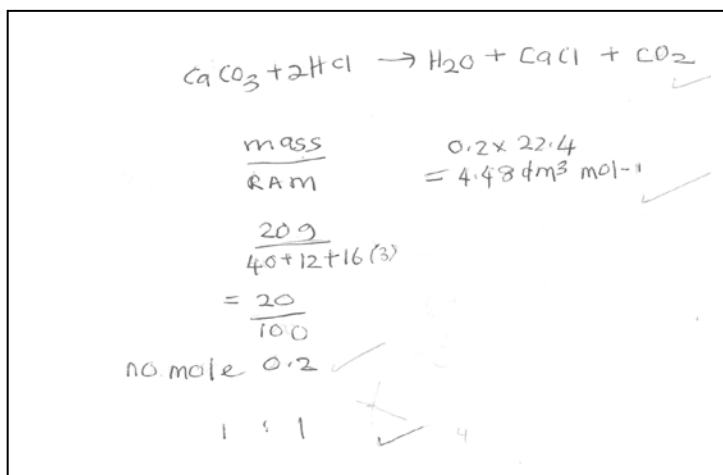 CaCO3 + 2HCl → H2O + CaCl + CO2
mass
RAM
0.2 x 22.4
= 4.48 dm³ mol-1
20g
40+12+16(3)
= 20
100
no. mole 0.2
1 : 1
4